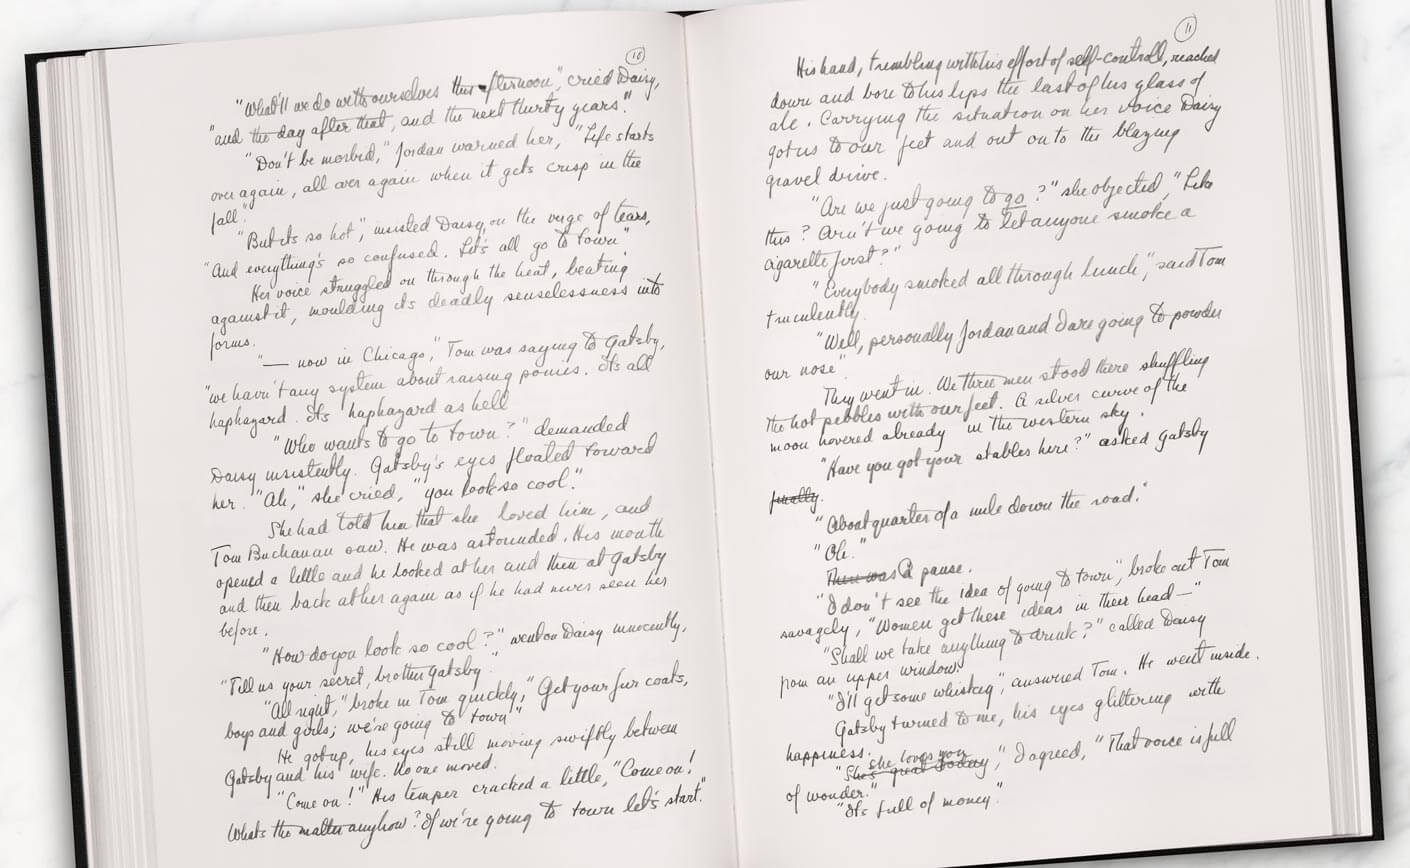 10
"What'll we do with ourselves this afternoon", cried Daisy,
"and the day after that, and the next thirty years."
"Don't be morbid," Jordan warned her, "Life starts
over again, all over again when it gets crisp in the
fall".
"But its so hot", insisted Daisy, on the verge of tears,
"And everything's so confused. Let's all go to town"
Her voice struggled on through the heat, beating
against it, moulding its deadly senselessness into
forms.
"— now in Chicago," Tom was saying to Gatsby,
"we havn't any system about raising ponies. Its all
haphazard. Its haphazard as hell
"Who wants to go to town?" demanded
Daisy insistently. Gatsby's eyes floated toward
her. "Ah," she cried, "you look so cool."
She had told him that she loved him, and
Tom Buchanan saw. He was astounded. His mouth
opened a little and he looked at her and then at Gatsby
and then back at her again as if he had never seen her
before.
"How do you look so cool?" went on Daisy innocently,
"Tell us your secret, brother Gatsby."
"All right," broke in Tom quickly, "Get your fur coats,
boys and girls; we're going to town"
He got up, his eyes still moving swiftly between
Gatsby and his wife. No one moved.
"Come on!" His temper cracked a little, "Come on!
Whats the matter anyhow? If we're going to town let's start."
11
His hand, trembling with his effort of self-controll, reached
down and bore to his lips the last of his glass of
ale. Carrying the situation on her voice Daisy
got us to our feet and out on to the blazing
gravel drive.
"Are we just going to go?" she objected, "Like
this? Arn't we going to let anyone smoke a
cigarette first?"
"Everybody smoked all through lunch", said Tom
truculently.
"Well, personally Jordan and I are going to powder
our nose".
They went in. We three men stood there shuffling
the hot pebbles with our feet. A silver curve of the
moon hovered already in the western sky.
"Have you got your stables here?" asked Gatsby
finally.
"About quarter of a mile down the road."
"Oh."
There was A pause.
"I don't see the idea of going to town", broke out Tom
savagely, "Women get these ideas in their head—"
"Shall we take anything to drink?" called Daisy
from an upper window.
"I'll get some whiskey", answered Tom. He went inside.
Gatsby turned to me, his eyes glittering with
happiness.
she loves you
"She's great today", I agreed, "That voice is full
of wonder."
"Its full of money".